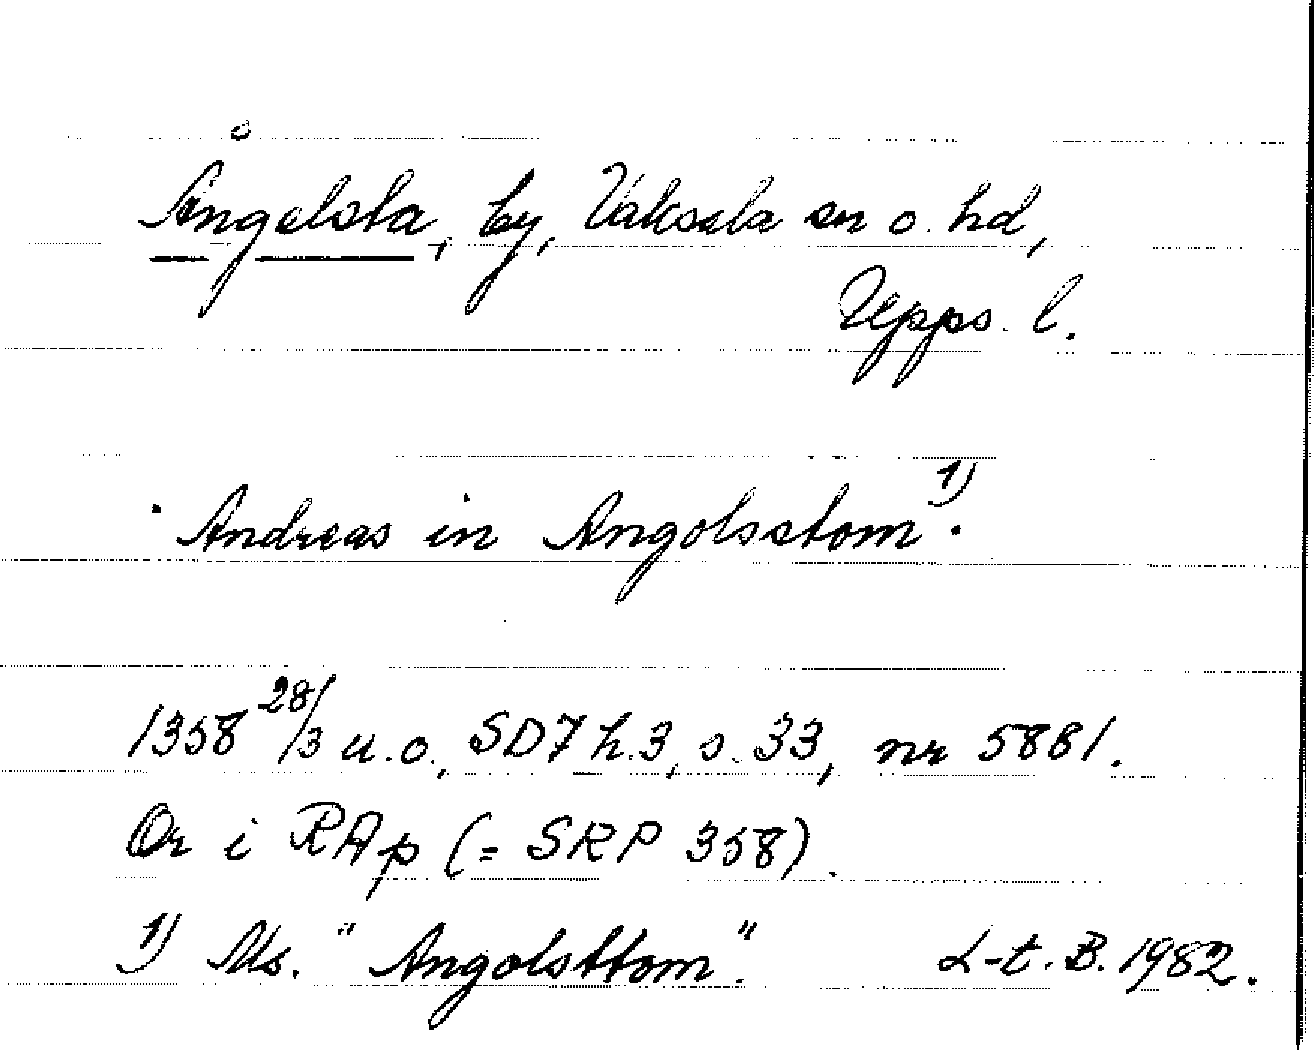 Ångelsta, by, Vaksala sn o. hd,
Upps. l.
"Andreas in Angolsstom" 1).
1358 28/3 u.o., SD 7 h.3, s. 33, nr 5881.
Or i RAp (= SRP 358).
1) Ms. "Angolsttom". L-t. B. 1982.